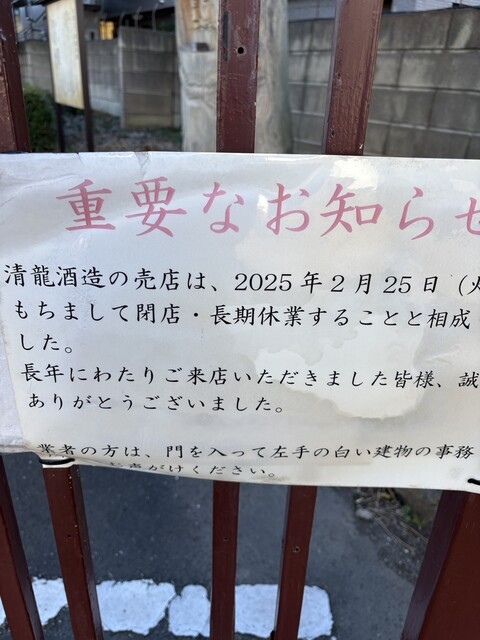 重要なお知らせ
清龍酒造の売店は、2025年2月25日（火
もちまして閉店・長期休業することと相成
した。
長年にわたりご来店いただきました皆様、誠
ありがとうございました。
業者の方は、門を入って左手の白い建物の事務
お声がけください。